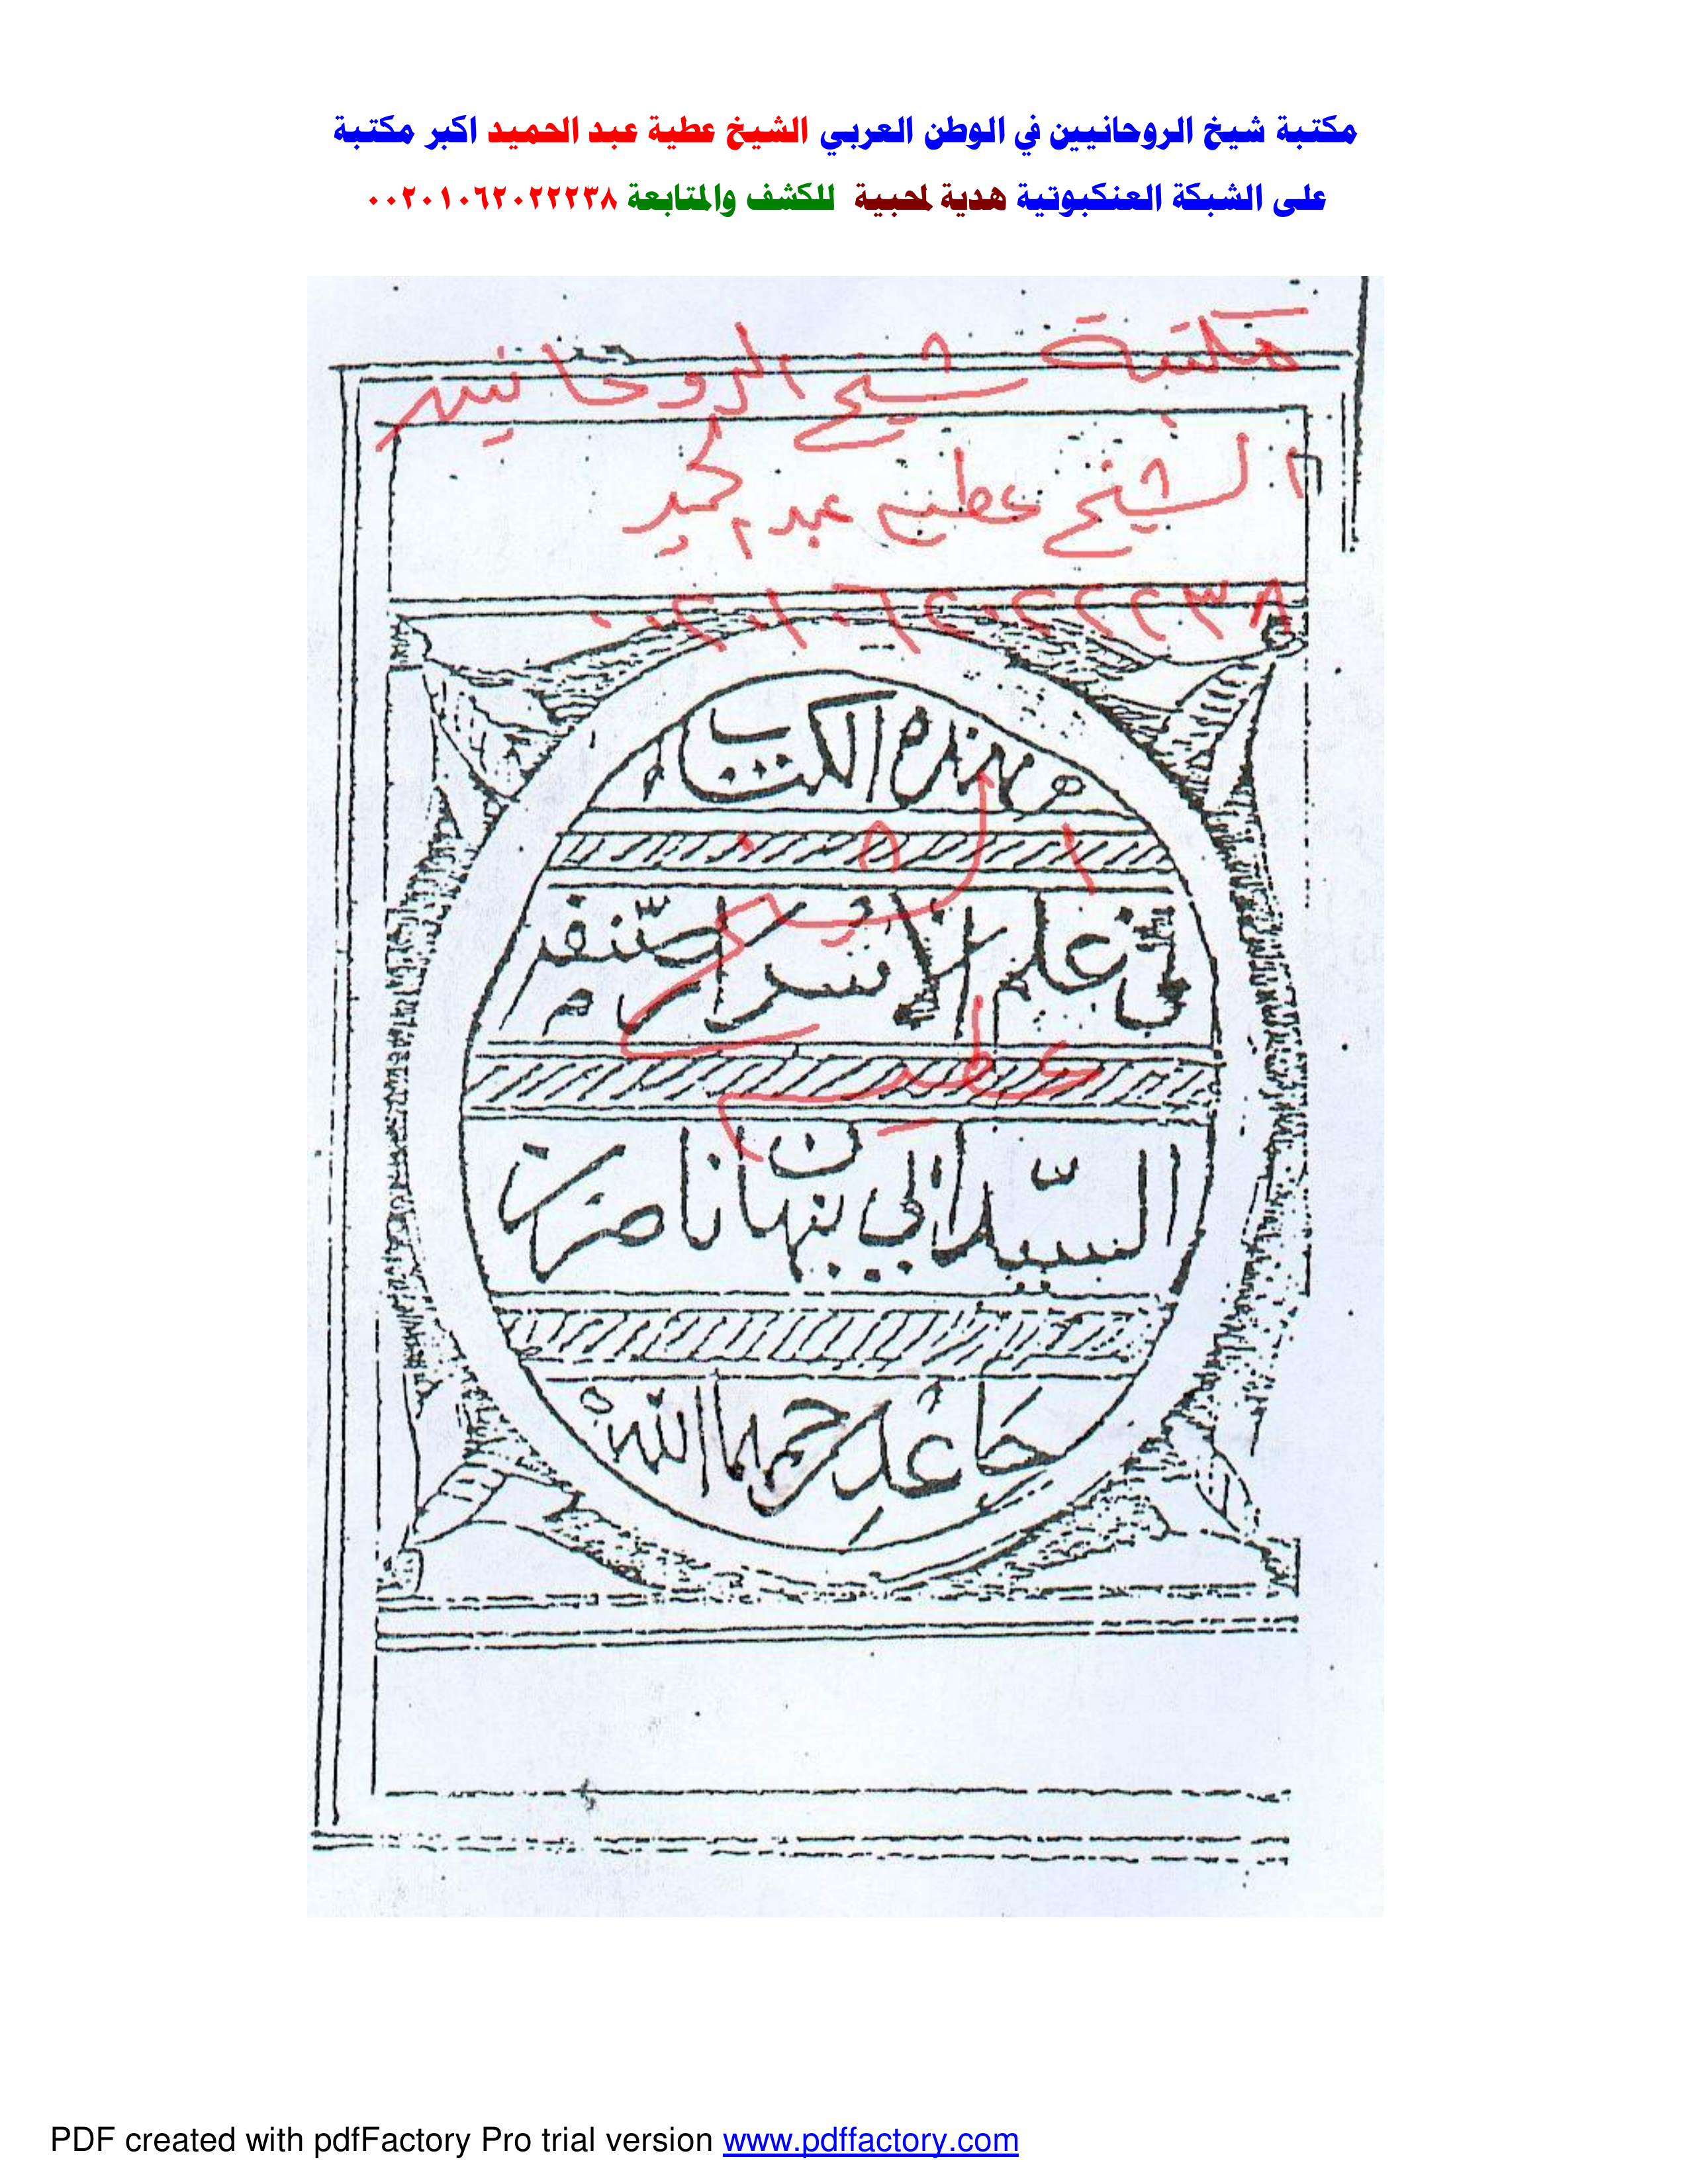 مكتبة شيخ الروحانيين في الوطن العربي الشيخ عطية عبد الحميد اكبر مكتبة
على الشبكة العنكبوتية هدية لمحبية للكشف والمتابعة ٠٠٢٠١٠٦٢٠٢٢٢٣٨
مكتبة شيخ الروحانيين
الشيخ عطية عبد الحميد
٠٠٢٠١٠٦٢٠٢٢٢٣٨
هذه الكتاب
في علم الاسرار صنفه
الشيخ
عطيه
السيد ابي نبهان ناصر بن
جاعد رحمهما الله
PDF created with pdfFactory Pro trial version www.pdffactory.com